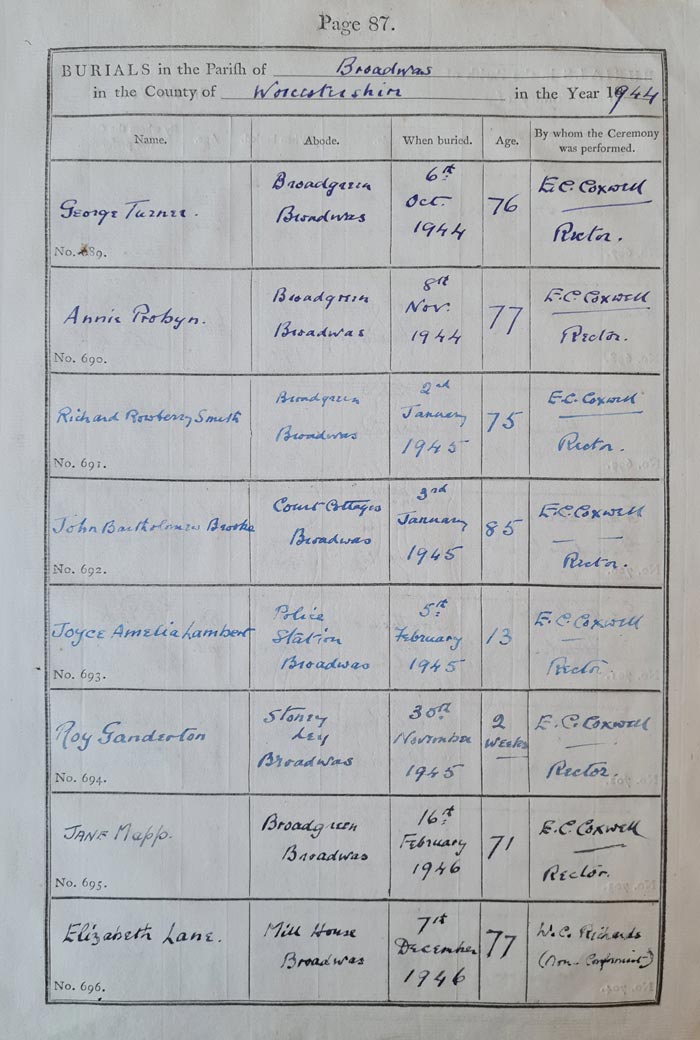 Page 87.
BURIALS in the Parish of Broadwas
in the County of Worcestershire in the Year 1944
Name. Abode. When buried. Age. By whom the Ceremony was performed.
George Turner.
No. 689.
Broadgreen
Broadwas
6th
Oct.
1944
76
E.C. Coxwell
Rector.
Annie Probyn.
No. 690.
Broadgreen
Broadwas
8th
Nov.
1944
77
E.C. Coxwell
Rector.
Richard Rowberry Smith
No. 691.
Broadgreen
Broadwas
2nd
January
1945
75
E.C. Coxwell
Rector.
John Bartholomew Brooke
No. 692.
Court Cottages
Broadwas
3rd
January
1945
85
E.C. Coxwell
Rector.
Joyce Amelia Lambert
No. 693.
Police
Station
Broadwas
5th
February
1945
13
E.C. Coxwell
Rector
Roy Ganderton
No. 694.
Stoney
Ley
Broadwas
30th
November
1945
2
weeks
E.C. Coxwell
Rector.
JANE Mapp.
No. 695.
Broadgreen
Broadwas
16th
February
1946
71
E.C. Coxwell
Rector.
Elizabeth Lane.
No. 696.
Mill House
Broadwas
7th
December
1946
77
W.C. Richards
(Non-Conformist)